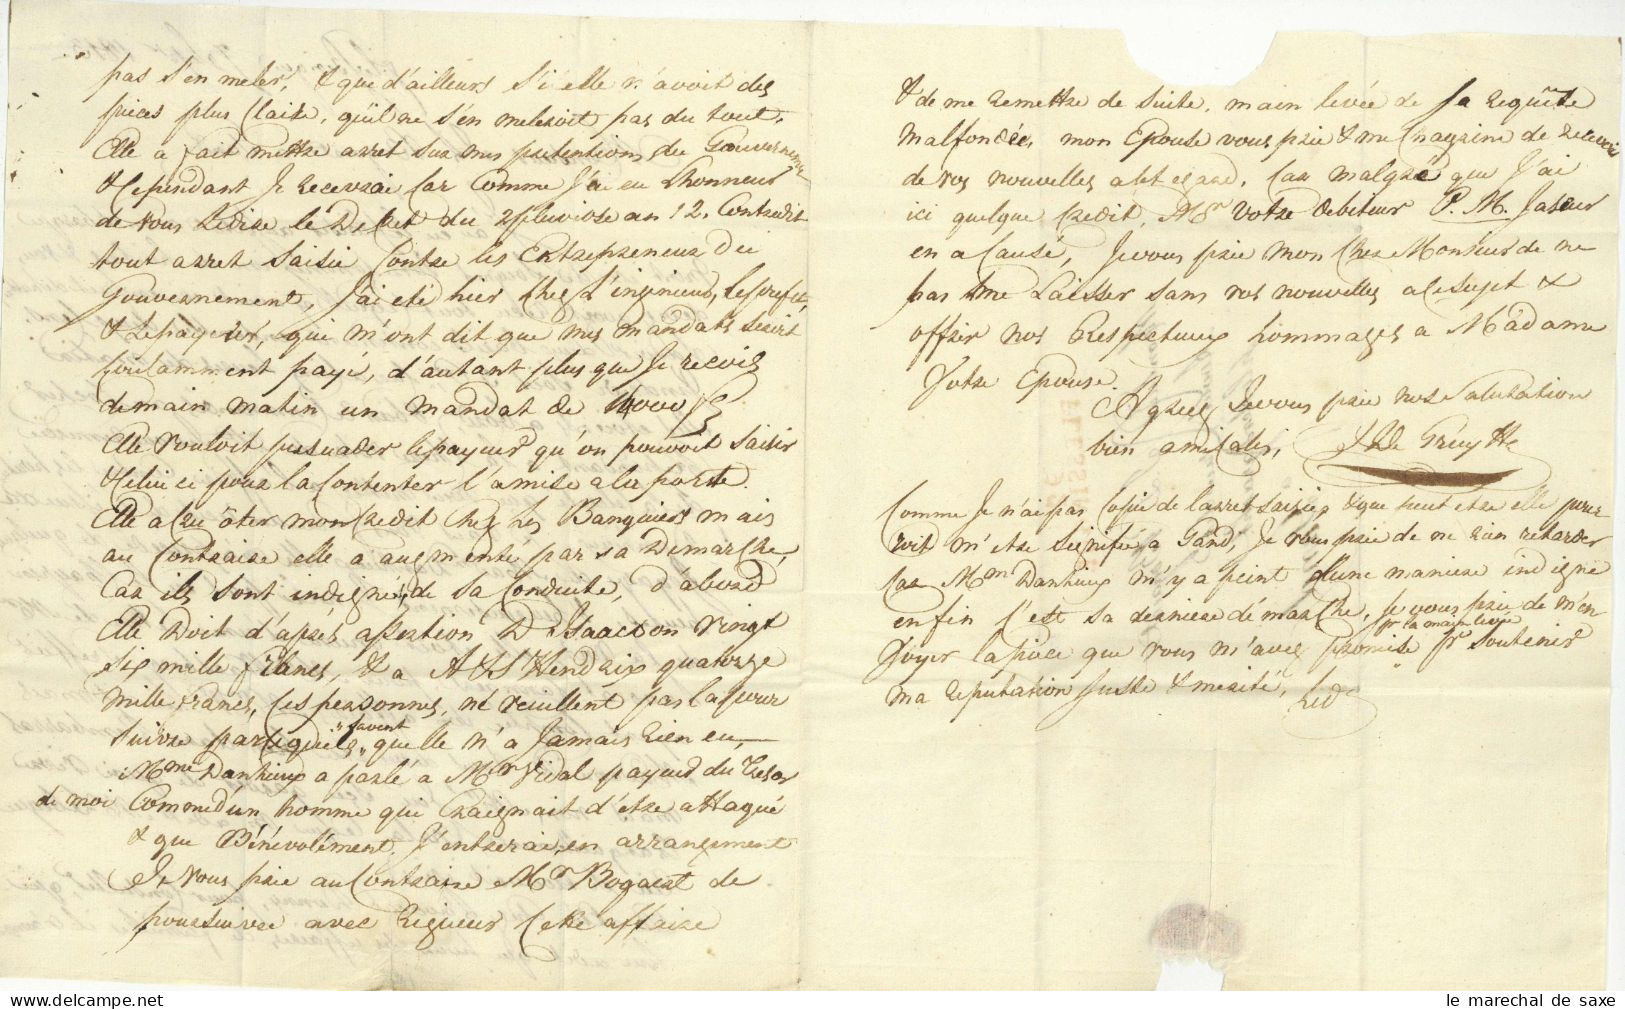 pas s'en meler, & que d'ailleurs si elle n'avoit des
pieces plus claire, qu'il ne s'en meleroit pas du tout.
Elle a fait mettre arret sur mes pretentions du Gouvernemt
& Cependant Je recevrai car Comme J'ai eu Lhonneur
de vous Ledire le Decret du 2 pluviose an 12. Contredit
tout arret Saisie Contre les Entrepreneur du
Gouvernement, J'ai eté hier chez L'ingenieur, Leprefet
& Lepayeur, qui m'ont dit que mes mandats Seroit
Coulamment payé, d'autant plus que Je recois
demain matin un mandat de 14000
Elle vouloit persuader lepayeur qu'on pouvoit Saisir
& celui ci pour la Contenter l'a mise a la porte.
Elle a cru ôter mon Credit chez les Banquiers mais
au Contraire elle a augmenté par sa Demarche,
Car ils sont indigné, de sa Conduite, d'abord
Elle Doit d'aprés assertion D Isaacson Vingt
Six mille francs, & a A & S Hendrix quatorze
mille francs, ces personnes, ne veuillent pas la pour
suivre parcequils savent quelle n'a Jamais rien eu,
Mme Danhieux a parlé a Mr Vidal payeur du tresor
de moi Comme d'un homme qui Craignait d'etre attaqué
& que Bénévolément J'entrerai, en arrangement
Je vous prie au Contraire Mr Bogaert de
poursuivre avec Rigueur Cette affaire
& de me remettre de Suite, main levée de Sa requête
malfondée, mon Epouse vous prie & me chagrine de recevoir
de vos nouvelles a cet egard, Car malgré que J'ai
ici quelque Credit, Mr Votre debiteur P. M.
en a Causé, Je vous prie mon cher Monsieur de ne
pas me Laisser sans vos nouvelles a ce sujet &
offrir nos Respectueux hommages a Madame
Votre Epouse.
Agreez Je vous prie nos Salutation
bien amicales, De Gruytte
Comme Je n'ai pas Copie de l'arret Saisie, & que peut etre elle pour
roit m'etre Signifié a Gand, Je vous prie de ne rien retarder
Car Mme Danhieux m'y a peint d'une maniere indigne
enfin c'est sa derniere démarche, Je vous prie de m'en
pr la main levée
voyer la piece que vous m'avez promise pr Soutenir
ma reputation Juste & merité,
le marechal de saxe